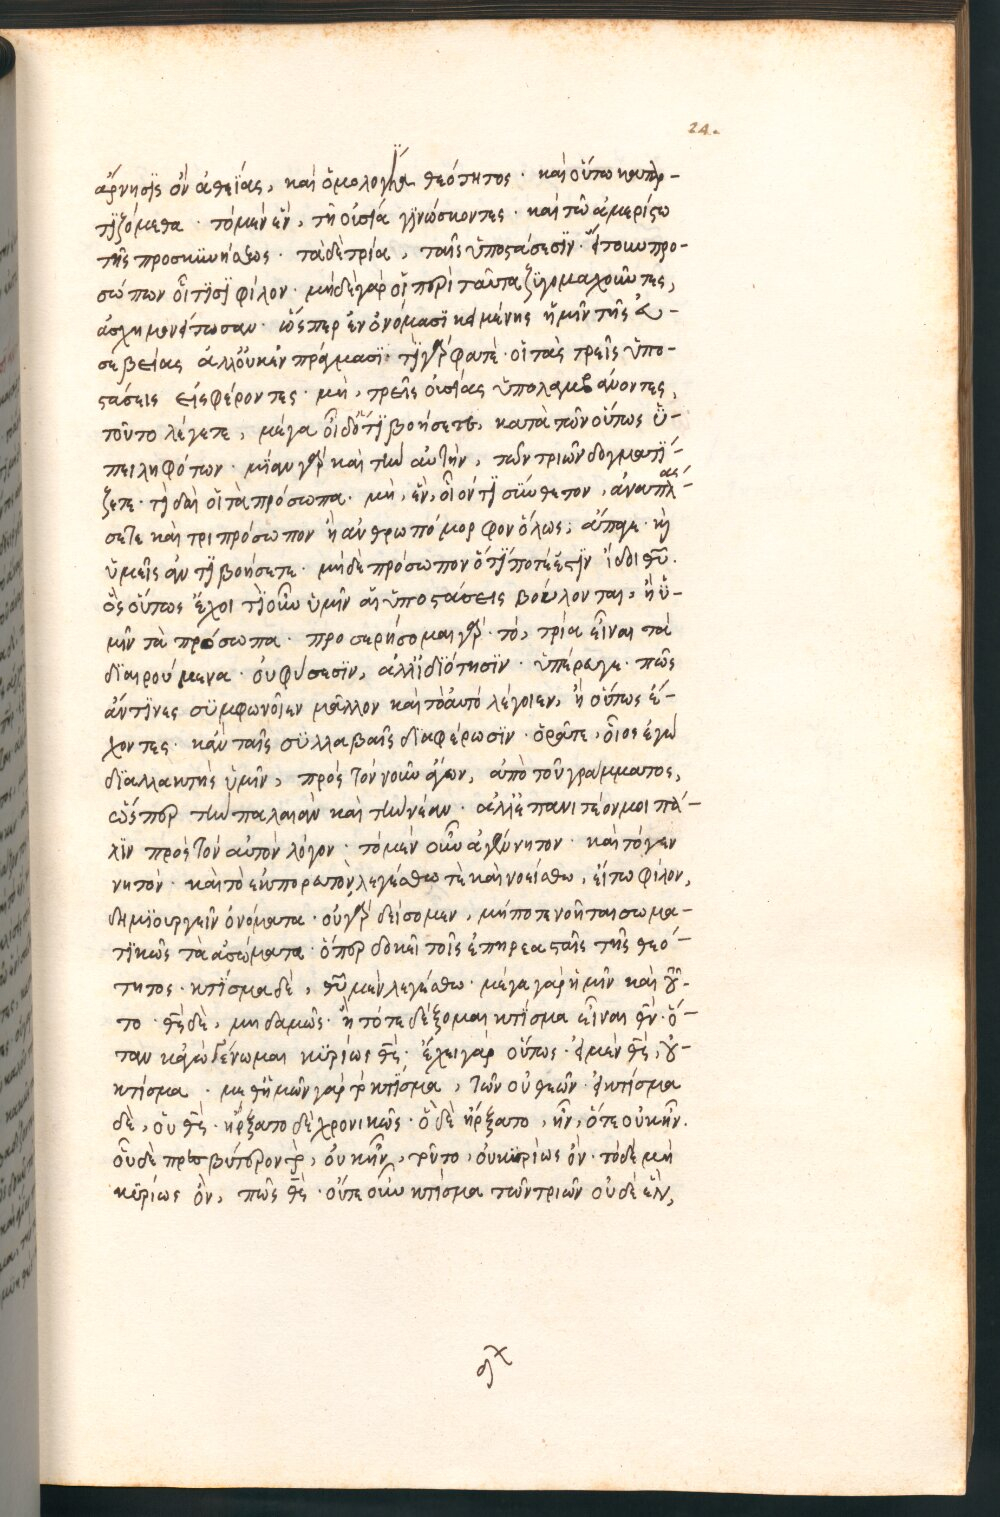 24.
ἄρνησϊς ὂν ἀθεΐας, καὶ ὁμολογΐα θεότητος · καὶ οὕτω καταρ-
τϊζόμεθα · τὸ μὲν ἓν, τῇ οὐσίᾳ γϊνώσκοντες · καὶ τῶ ἀμερίστω
τῆς προσκϋνήσεως · τὰ δὲ τρία, ταῖς ὑποστάσεσϊν · εἴτουν προ-
σώποις, οἵ τϊσϊ φίλον · μὴ δὲ γὰρ οἱ περὶ ταῦτα ζϋγομαχοῦντες,
ἀσχημονείτωσαν · ὥσπερ ἐν ὀνόμασϊ κειμένης ἡμῖν τῆς εὐ-
σεβείας ἀλλ' οὐκ ἐν πράγμασϊ · τϊ γάρ φατὲ · οἱ τὰς τρεῖς ὑπο-
στάσεις εἰσφέροντες · μὴ, τρεῖς οὐσίας ὑπολαμβάνοντες,
τοῦτο λέγετε, μέγα οἶδ' ὅτϊ βοήσετε, κατὰ τῶν οὕτως ὑ-
πειληφότων · μίαν γὰρ καὶ τὴν αὐτὴν, τῶν τριῶν δογματϊ-
ζετε · τὶ δαὶ οἱ τὰ πρόσωπα · μὴ, ἓν, οἷόν τϊ σύνθετον, ἀναπλάσ-
σετε καὶ τριπρόσωπον ἢ ἀνθρωπόμορφον ὅλως; ἄπαγε · καὶ
ὑμεῖς ἀντϊβοήσετε · μὴ δὲ πρόσωπον ὅτϊ ποτέ ἐστϊν ἴδοι θῦ.
ὃς οὕτως ἔχοι τϊ οὖν ὑμῖν αἱ ὑποστάσεις βούλονται, ἢ ὑ-
μῖν τὰ πρόσωπα · προσερήσομαι γὰρ · τὸ, τρία εἶναι τὰ
διαιρούμενα · οὐ φύσεσϊν, ἀλλ' ἰδϊότησϊν · ὑπέρευγε · πῶς
ἄν τϊνες σϋμφωνοῖεν μᾶλλον καὶ τὸ αὐτὸ λέγοιεν, ἢ οὕτως ἔ-
χοντες · κἂν ταῖς σϋλλαβαῖς διαφέρωσϊν · ὁρᾶτε, οἷος ἐγὼ
διαλλακτὴς ὑμῖν, πρὸς τὸν νοῦν ἄγων, ἀπὸ τοῦ γράμματος,
ὥσπερ τὴν παλαιὰν καὶ τὴν νέαν · ἀλλ' ἐπανιτέον μοι πά-
λϊν πρὸς τὸν αὐτὸν λόγον · τὸ μὲν οὖν ἀγέννητον · καὶ τὸ γεν
νητὸν · καὶ τὸ ἐκπορευτὸν, λεγέσθω τὲ καὶ νοείσθω, εἴ τω φίλον,
δημϊουργεῖν ὀνόματα · οὐ γὰρ δείσομεν, μήποτε νοῆται σωμα-
τϊκῶς τὰ ἀσώματα · ὅπερ δοκεῖ τοῖς ἐπηρεασταῖς τῆς θεό-
τητος · κτϊσμα δὲ, θῦ μὲν λεγέσθω · μέγα γὰρ ἡμῖν καὶ τοῦ-
το · θς δὲ, μηδαμῶς · ἢ τότε δέξομαι κτίσμα εἶναι θν · ὅ-
ταν κἀγὼ γένωμαι κϋρίως θς · ἔχει γὰρ οὕτως · εἰ μὲν θς, οὐ
κτίσμα · μεθ' ἡμῶν γὰρ τὸ κτϊσμα, τῶν οὐ θεῶν · εἰ κτίσμα
δὲ, οὐ θς · ἤρξατο δὲ χρονικῶς · ὃ δὲ ἤρξατο, ἦν, ὅτε οὐκ ἦν.
οὗ δὲ πρεσβύτερον τὸ, οὐκ ἦν, τοῦτο, οὐ κυρίως ὄν · τὸ δὲ μὴ
κϋρίως ὂν, πῶς θς · οὔτε οὖν κτίσμα τῶν τριῶν οὐδὲ ἓν,